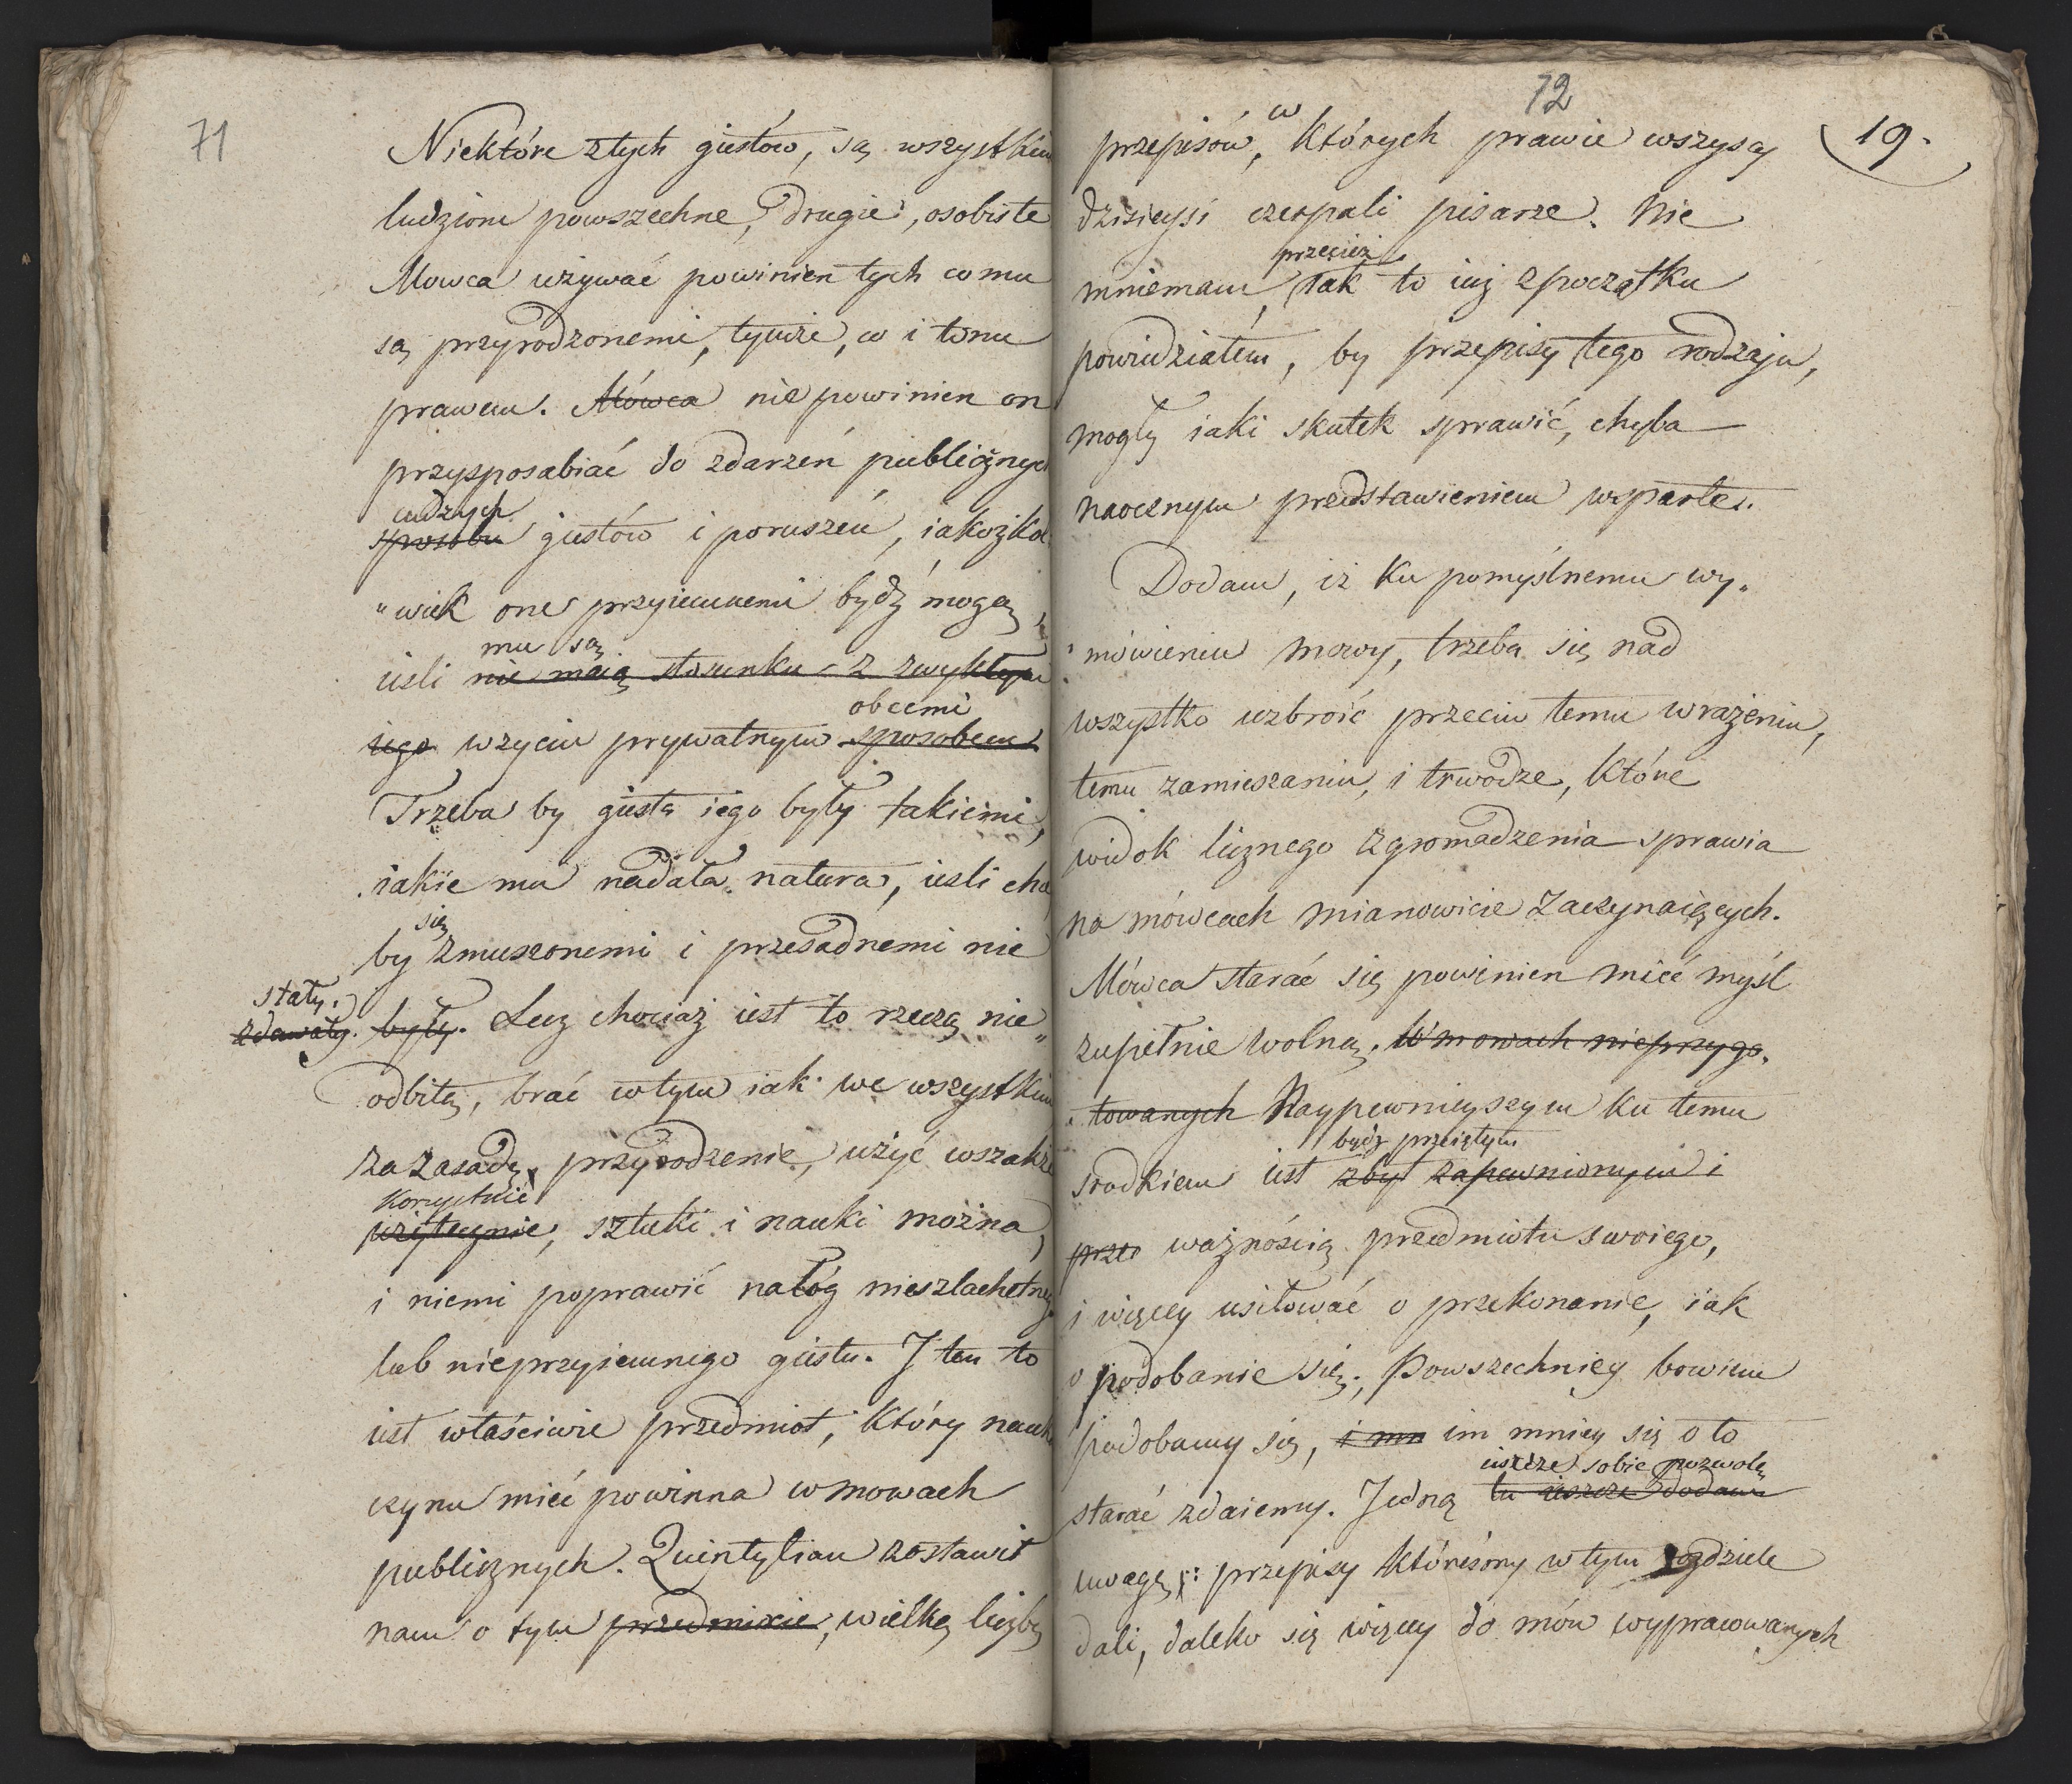 71
Niektóre ztych giestów, są wszystkim
ludziom powszechne, drugie, osobiste
Mowca używać powinien tych co mu
są przyrodzonemi, tymże, co i tonu
prawem. Mówca nie powinien on
przysposabiać do zdarzeń publicznych
cudzych
sposobu giestów i poruszeń, iakożkol
„wiek one przyiemnemi bydź mogą,
mu są
ieśli nie maią stosunku z zwykłym
obcemi
iego wżyciu prywatnym sposobem
Trzeba by giesta iego były takiemi,
iakie mu nadała natura, ieśli chce
się
by zmuszonemi i przesadnemi nie
stały.
zdawały. były. Lecz chociaż iest to rzeczą nie„
odbitą, brać wtym iak we wszystkim
za zasadę, przyrodzenie, użyć wszakże
korzystnie
użytecznie, sztuki i nauki można,
i niemi poprawić nałóg nieszlachetnego
lub nieprzyiemnego giestu. I ten to
iest właściwie przedmiot, który nauka
czynu mieć powinna w mowach
publicznych. Quintylian zostawił
nam o tym przedmiocie, wielką liczbę
72
19.
w
przepisów, których prawie wszyscy
dzisieysi czerpali pisarze. Nie
przecież
mniemam, iak to iuż zpoczątku
powiedziałem, by przepisy tego rodzaju,
mogły iaki skutek sprawić, chyba
naocznym przedstawieniem wsparte.
Dodam, iż ku pomyślnemu wy„
„mówieniu mowy, trzeba się nad
wszystko uzbroić przeciw temu wrażeniu,
temu zamieszaniu, i trwodze, które
widok licznego zgromadzenia sprawia
na mówcach mianowicie Zaczynaiących.
Mówca starać się powinien mieć myśl
zupełnie wolną. W mowach nieprzygo„
„towanych Naypewnieyszym ku temu
bydź przeiętym
srodkiem iest zbyt zapewnionym i
przez ważnością przedmiotu swoiego,
i więcey usiłować o przekonanie, iak
o podobanie się; Powszechniey bowiem
podobamy się, i mn im mniey się o to
ieszcze sobie pozwolę
starać zdaiemy. Jedną tu ieszcze dodam
uwagę: przepisy któreśmy w tym rozdziele
dali, daleko się więcey do mów wypracowanych